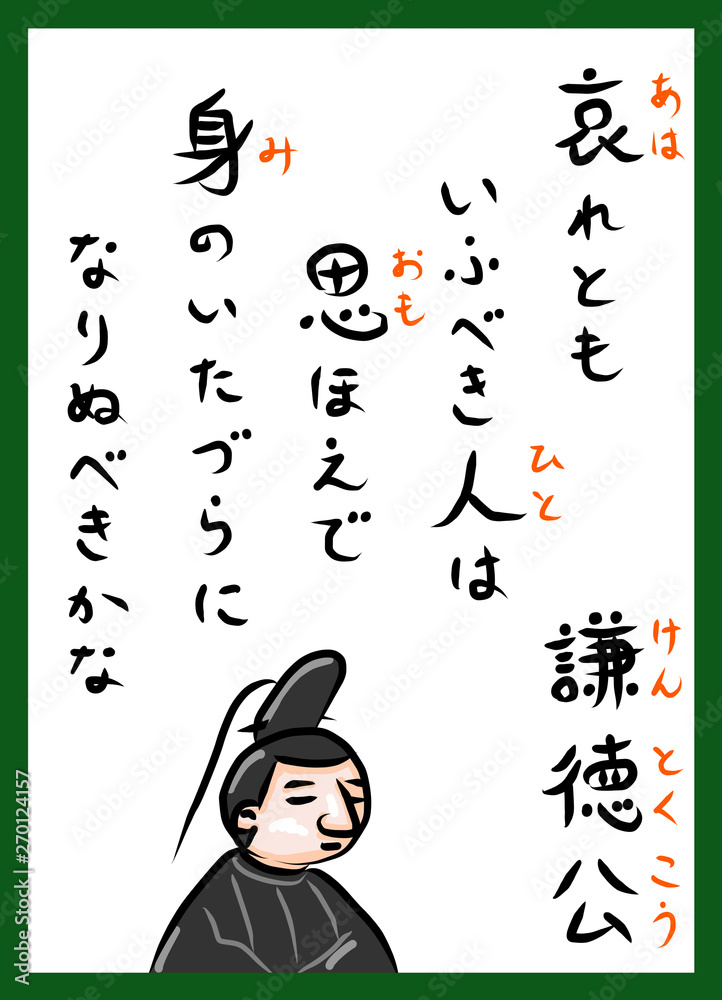 哀れとも
あは
いふべき人は
ひと
思ほえで
おも
身のいたづらに
み
なりぬべきかな
謙徳公
けんとくこう
Adobe Stock | #270124157